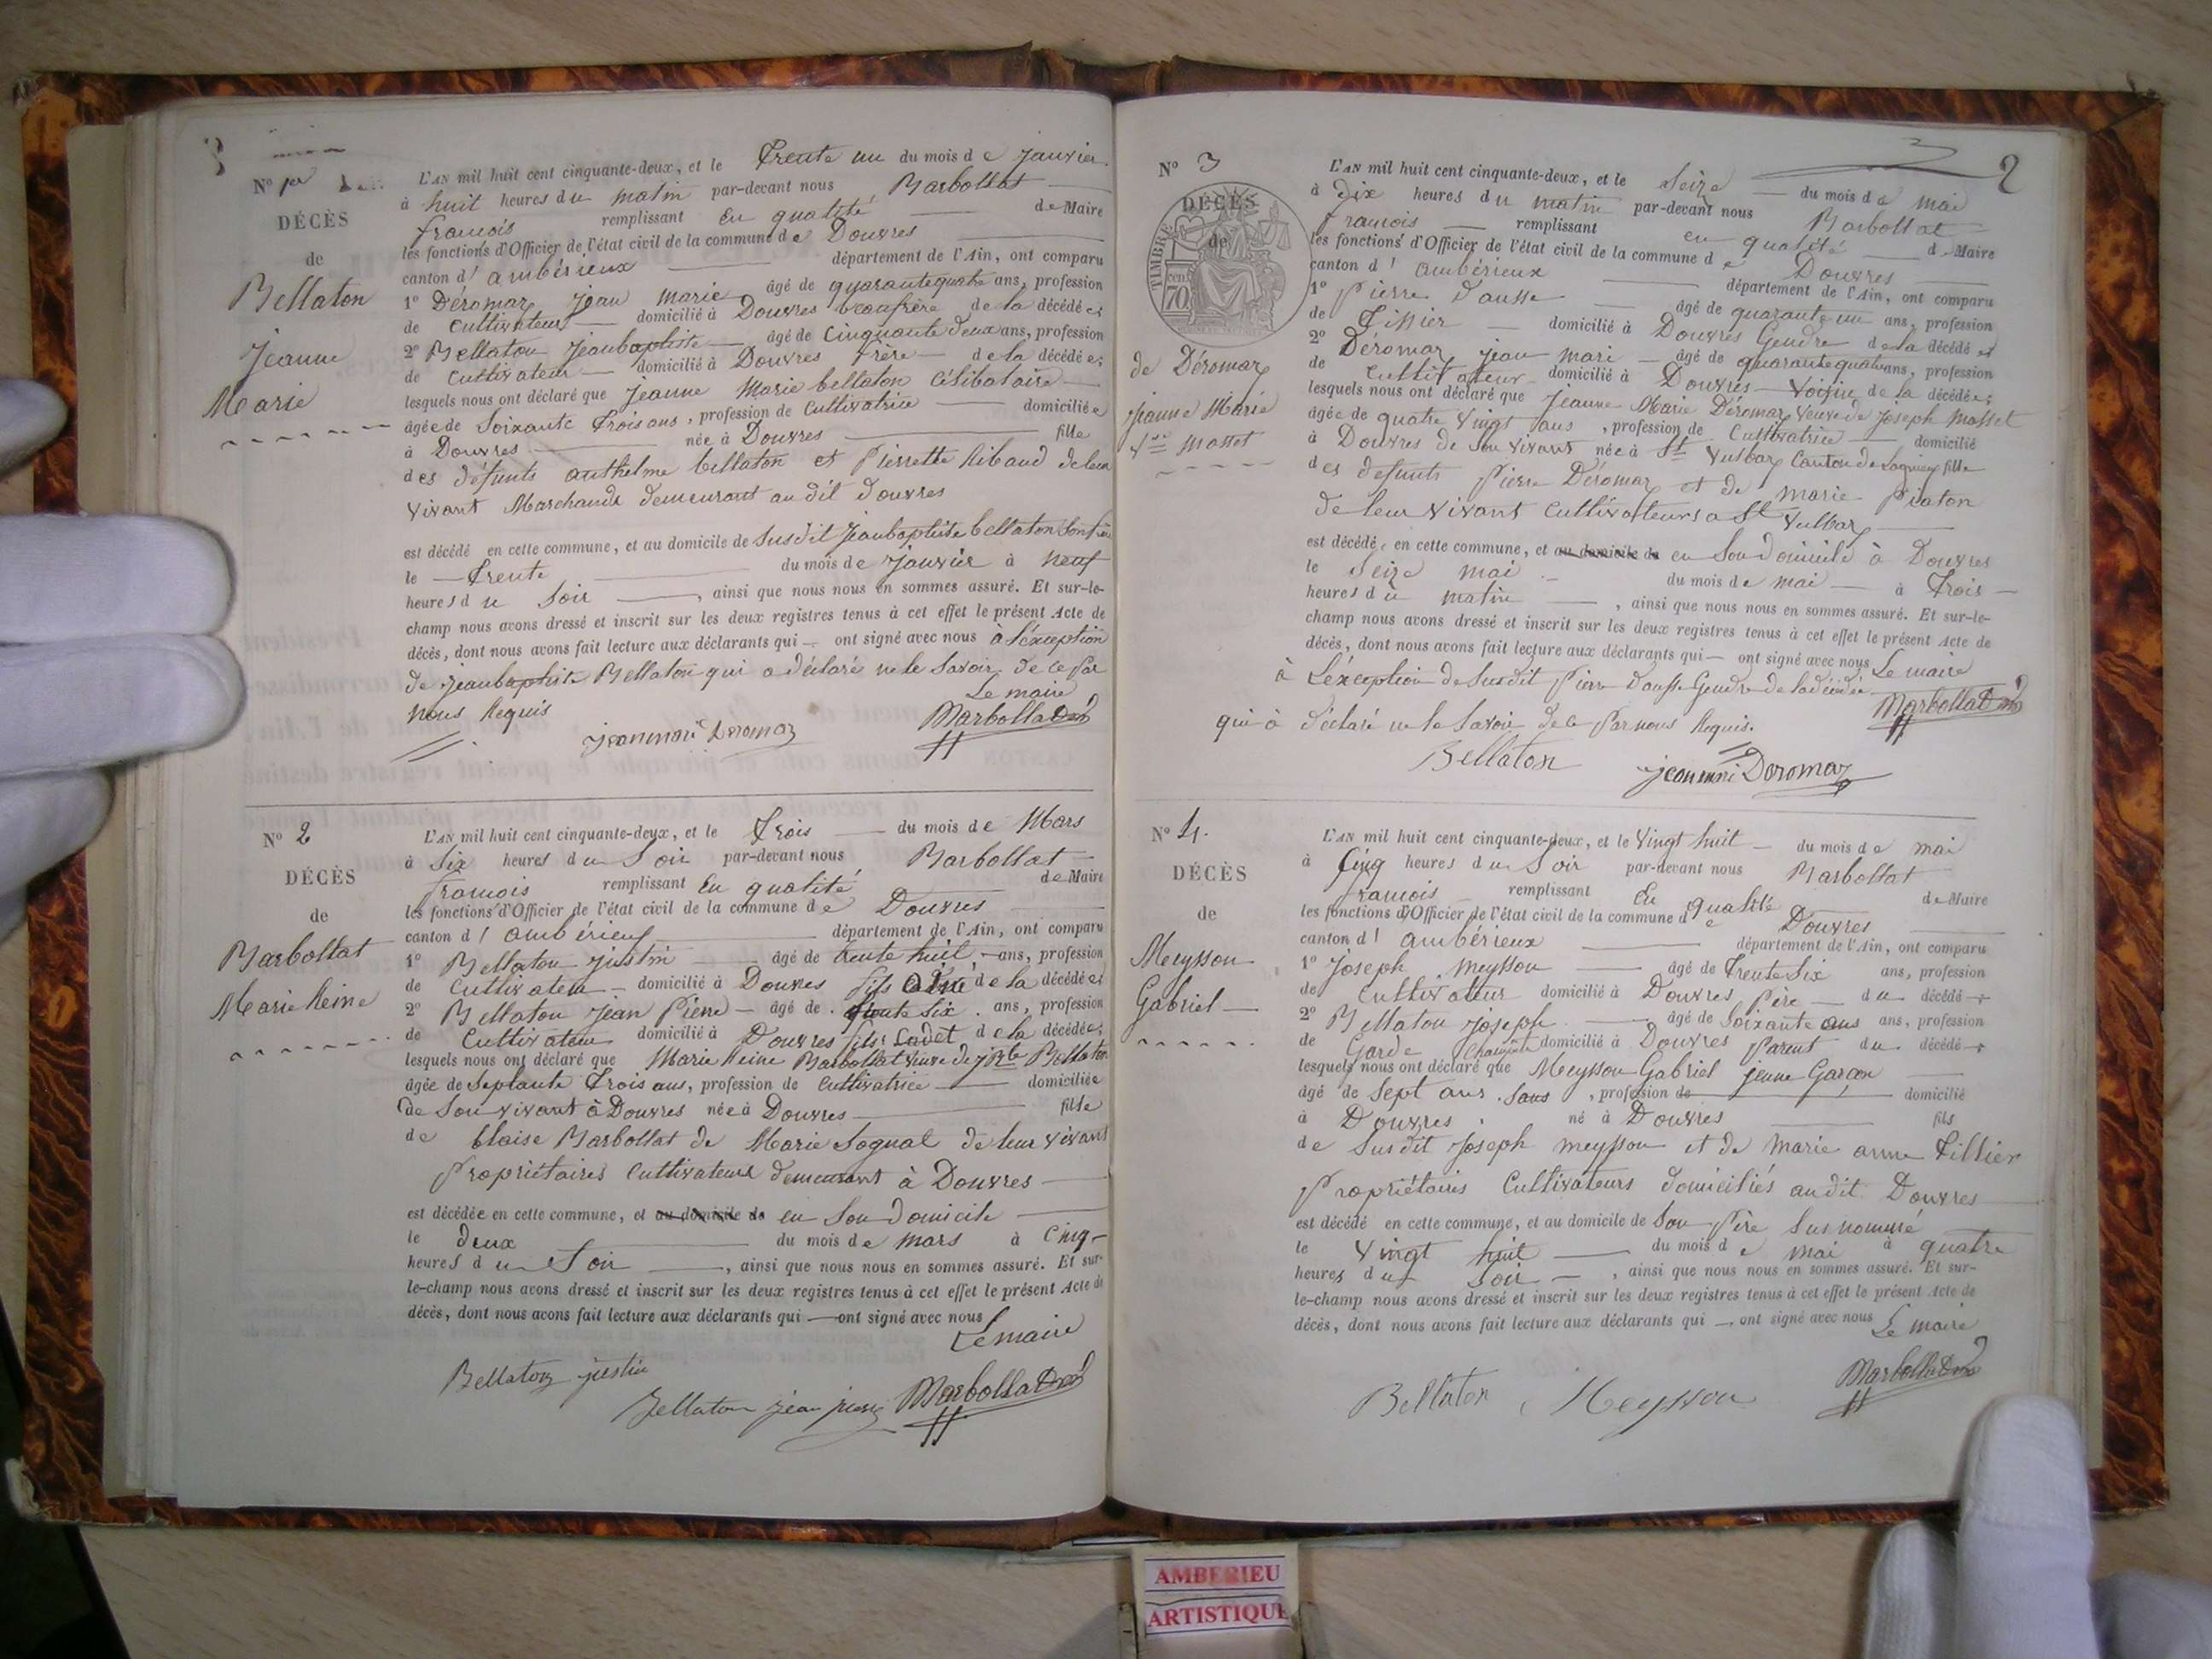 N° 1er
DÉCÈS
de
Bellaton
Jeanne
Marie
L'AN mil huit cent cinquante-deux, et le Trente un du mois de Janvier
à huit heures du matin par-devant nous Barbollat
françois remplissant En qualité de Maire
les fonctions d'Officier de l'état civil de la commune de Douvres
canton d' ambérieux département de l'Ain, ont comparu
1° Déromaz Jean Marie âgé de quarante quatre ans, profession
de Cultivateur domicilié à Douvres beaufrère de la décédée;
2° Bellaton Jeanbaptiste âgé de Cinquante deux ans, profession
de Cultivateur domicilié à Douvres frère de la décédée;
lesquels nous ont déclaré que Jeanne Marie bellaton Célibataire
âgée de Soixante Trois ans, profession de Cultivatrice domiciliée
à Douvres née à Douvres fille
des défunts anthelme bellaton et Pierrette Ribaud de leur
vivant Marchands demeurant au dit douvres
est décédé en cette commune, et au domicile de Susdit Jeanbaptiste bellaton Son frère
le Trente du mois de Janvier à neuf
heures du Soir, ainsi que nous nous en sommes assuré. Et sur-le-
champ nous avons dressé et inscrit sur les deux registres tenus à cet effet le présent Acte de
décès, dont nous avons fait lecture aux déclarants qui ont signé avec nous à L'exception
de Jeanbaptiste Bellaton qui a déclaré ne le Savoir de ce Par
nous Requis Le maire
jeanmari Deromaz Marbollat
N° 2
DÉCÈS
de
Barbollat
Marie Reine
L'AN mil huit cent cinquante-deux, et le Trois du mois de Mars
à Six heures du Soir par-devant nous Barbollat
françois remplissant En qualité de Maire
les fonctions d'Officier de l'état civil de la commune de Douvres
canton d' ambérieux département de l'Ain, ont comparu
1° Bellaton Justin âgé de trente huit ans, profession
de Cultivateur domicilié à Douvres fils aîné de la décédée;
2° Bellaton Jean Pierre âgé de trente Six ans, profession
de Cultivateur domicilié à Douvres fils Cadet de la décédée;
lesquels nous ont déclaré que Marie Reine Barbollat veuve de Bellaton
âgée de Septante Trois ans, profession de Cultivatrice domiciliée
de Son vivant à Douvres née à Douvres fille
de blaise Barbollat de Marie Sognal de leur vivant
Propriétaires Cultivateurs demeurant à Douvres
est décédée en cette commune, et au domicile de en Son Domicile
le deux du mois de mars à Cinq
heures du Soir, ainsi que nous nous en sommes assuré. Et sur-
le-champ nous avons dressé et inscrit sur les deux registres tenus à cet effet le présent Acte de
décès, dont nous avons fait lecture aux déclarants qui ont signé avec nous
Le maire
Bellaton justin
Bellaton jean pierre Marbollat
2
N° 3
DÉCÈS
de
TIMBRE
70 cent
de Déromaz
Jeanne Marie
Vve Masset
L'AN mil huit cent cinquante-deux, et le Seize du mois de mai
à Dix heures du matin par-devant nous Barbollat
françois remplissant en qualité de Maire
les fonctions d'Officier de l'état civil de la commune de Douvres
canton d' ambérieux département de l'Ain, ont comparu
1° Pierre Dausse âgé de quarante un ans, profession
de Tissier domicilié à Douvres Gendre de la décédée
2° Déromaz Jean Mari âgé de quarante quatre ans, profession
de Cultivateur domicilié à Douvres Voisin de la décédée;
lesquels nous ont déclaré que Jeanne Marie Déromaz Veuve de Joseph Masset
âgée de quatre Vingt ans, profession de Cultivatrice domicilié
à Douvres de Son Vivant née à St Vulbaz Canton de Lagnieu fille
des defunts Pierre Déromaz et de Marie Piaton
de leur vivant Cultivateurs a St Vulbaz
est décédée en cette commune, et au domicile de en Son domicile à Douvres
le Seize mai du mois de mai à Trois
heures du matin, ainsi que nous nous en sommes assuré. Et sur-le-
champ nous avons dressé et inscrit sur les deux registres tenus à cet effet le présent Acte de
décès, dont nous avons fait lecture aux déclarants qui ont signé avec nous Le maire
à L'exception de Susdit Pierre Dausse Gendre de la décédée Marbollat
qui à déclaré ne le Savoir de ce Par nous Requis.
Bellaton jeanmari Deromaz
N° 4.
DÉCÈS
de
Meysson
Gabriel
L'AN mil huit cent cinquante-deux, et le Vingt huit du mois de mai
à Cinq heures du Soir par-devant nous Barbollat
françois remplissant En qualité de Maire
les fonctions d'Officier de l'état civil de la commune de Douvres
canton d' ambérieux département de l'Ain, ont comparu
1° Joseph Meysson âgé de Trente Six ans, profession
de Cultivateur domicilié à Douvres Père du décédé
2° Bellaton Joseph âgé de Soixante ans ans, profession
de Garde Champêtre domicilié à Douvres Parent du décédé
lesquels nous ont déclaré que Meysson Gabriel jeune Garçon
âgé de Sept ans. Sans, profession de domicilié
à Douvres né à Douvres fils
de Susdit Joseph meysson et de Marie anne Tillier
Propriétaires Cultivateurs domiciliés audit Douvres
est décédé en cette commune, et au domicile de Son Père Susnommé
le Vingt huit du mois de mai à quatre
heures du Soir, ainsi que nous nous en sommes assuré. Et sur-
le-champ nous avons dressé et inscrit sur les deux registres tenus à cet effet le présent Acte de
décès, dont nous avons fait lecture aux déclarants qui ont signé avec nous Le maire
Bellaton Meysson Marbollat
AMBERIEU
ARTISTIQUE